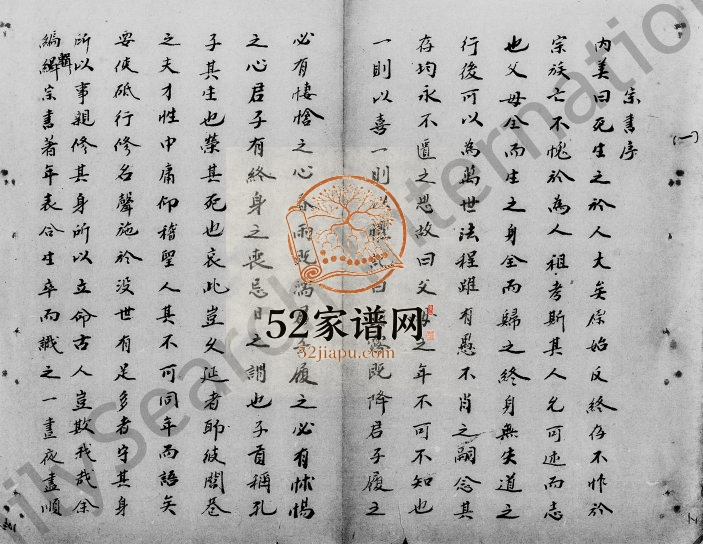 宗書序
(一)
内美曰死生之於人大矣原始反終存不怍於
宗族亡不愧於為人祖考斯其人允可述而志
也父母全而生之身全而歸之終身無失道之
行後可以為萬世法程雖有愚不肖之嗣念其
存均永不匱之思故曰父母之年不可不知也
一則以喜一則以懼 曰 既降君子履之
必有悽愴之心春雨既濡 子履之必有怵惕
之心君子有終身之喪忌日之謂也子貢稱孔
子其生也榮其死也哀此豈久延者耶彼閭巷
之夫才性中庸仰稽聖人其不可同年而語矣
要使砥行修名聲施於没世有足多者守其身
所以事親修其身所以立命古人豈欺我哉余
編輯宗書著年表合生卒而誠之一晝夜盡順
52家谱网
52jiapu.com
ilySearch International